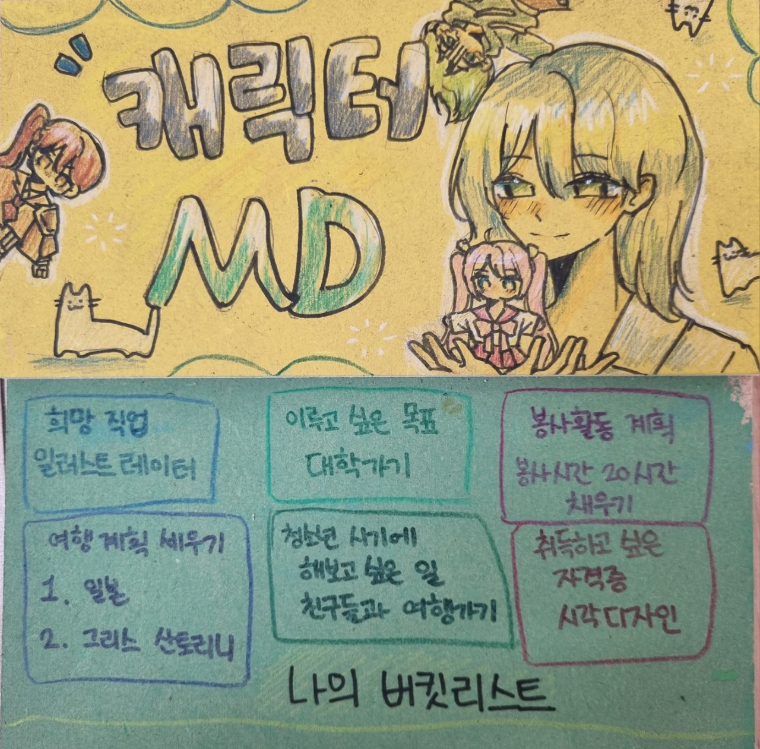 캐릭터
MD
희망 직업
일러스트레이터
이루고 싶은 목표
대학가기
봉사활동 계획
봉사시간 20시간
채우기
여행 계획 세우기
1. 일본
2. 그리스 산토리니
청소년 시기에
해보고 싶은 일
친구들과 여행가기
취득하고 싶은
자격증
시각디자인
나의 버킷리스트